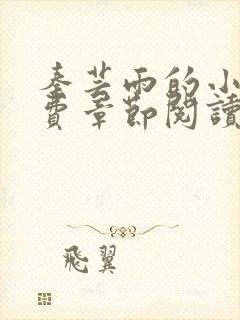 秦芸雨的小
費章節閱讀
飛翼